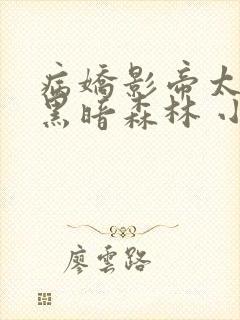 病嬌影帝太
黑暗森林 小
廖雲路